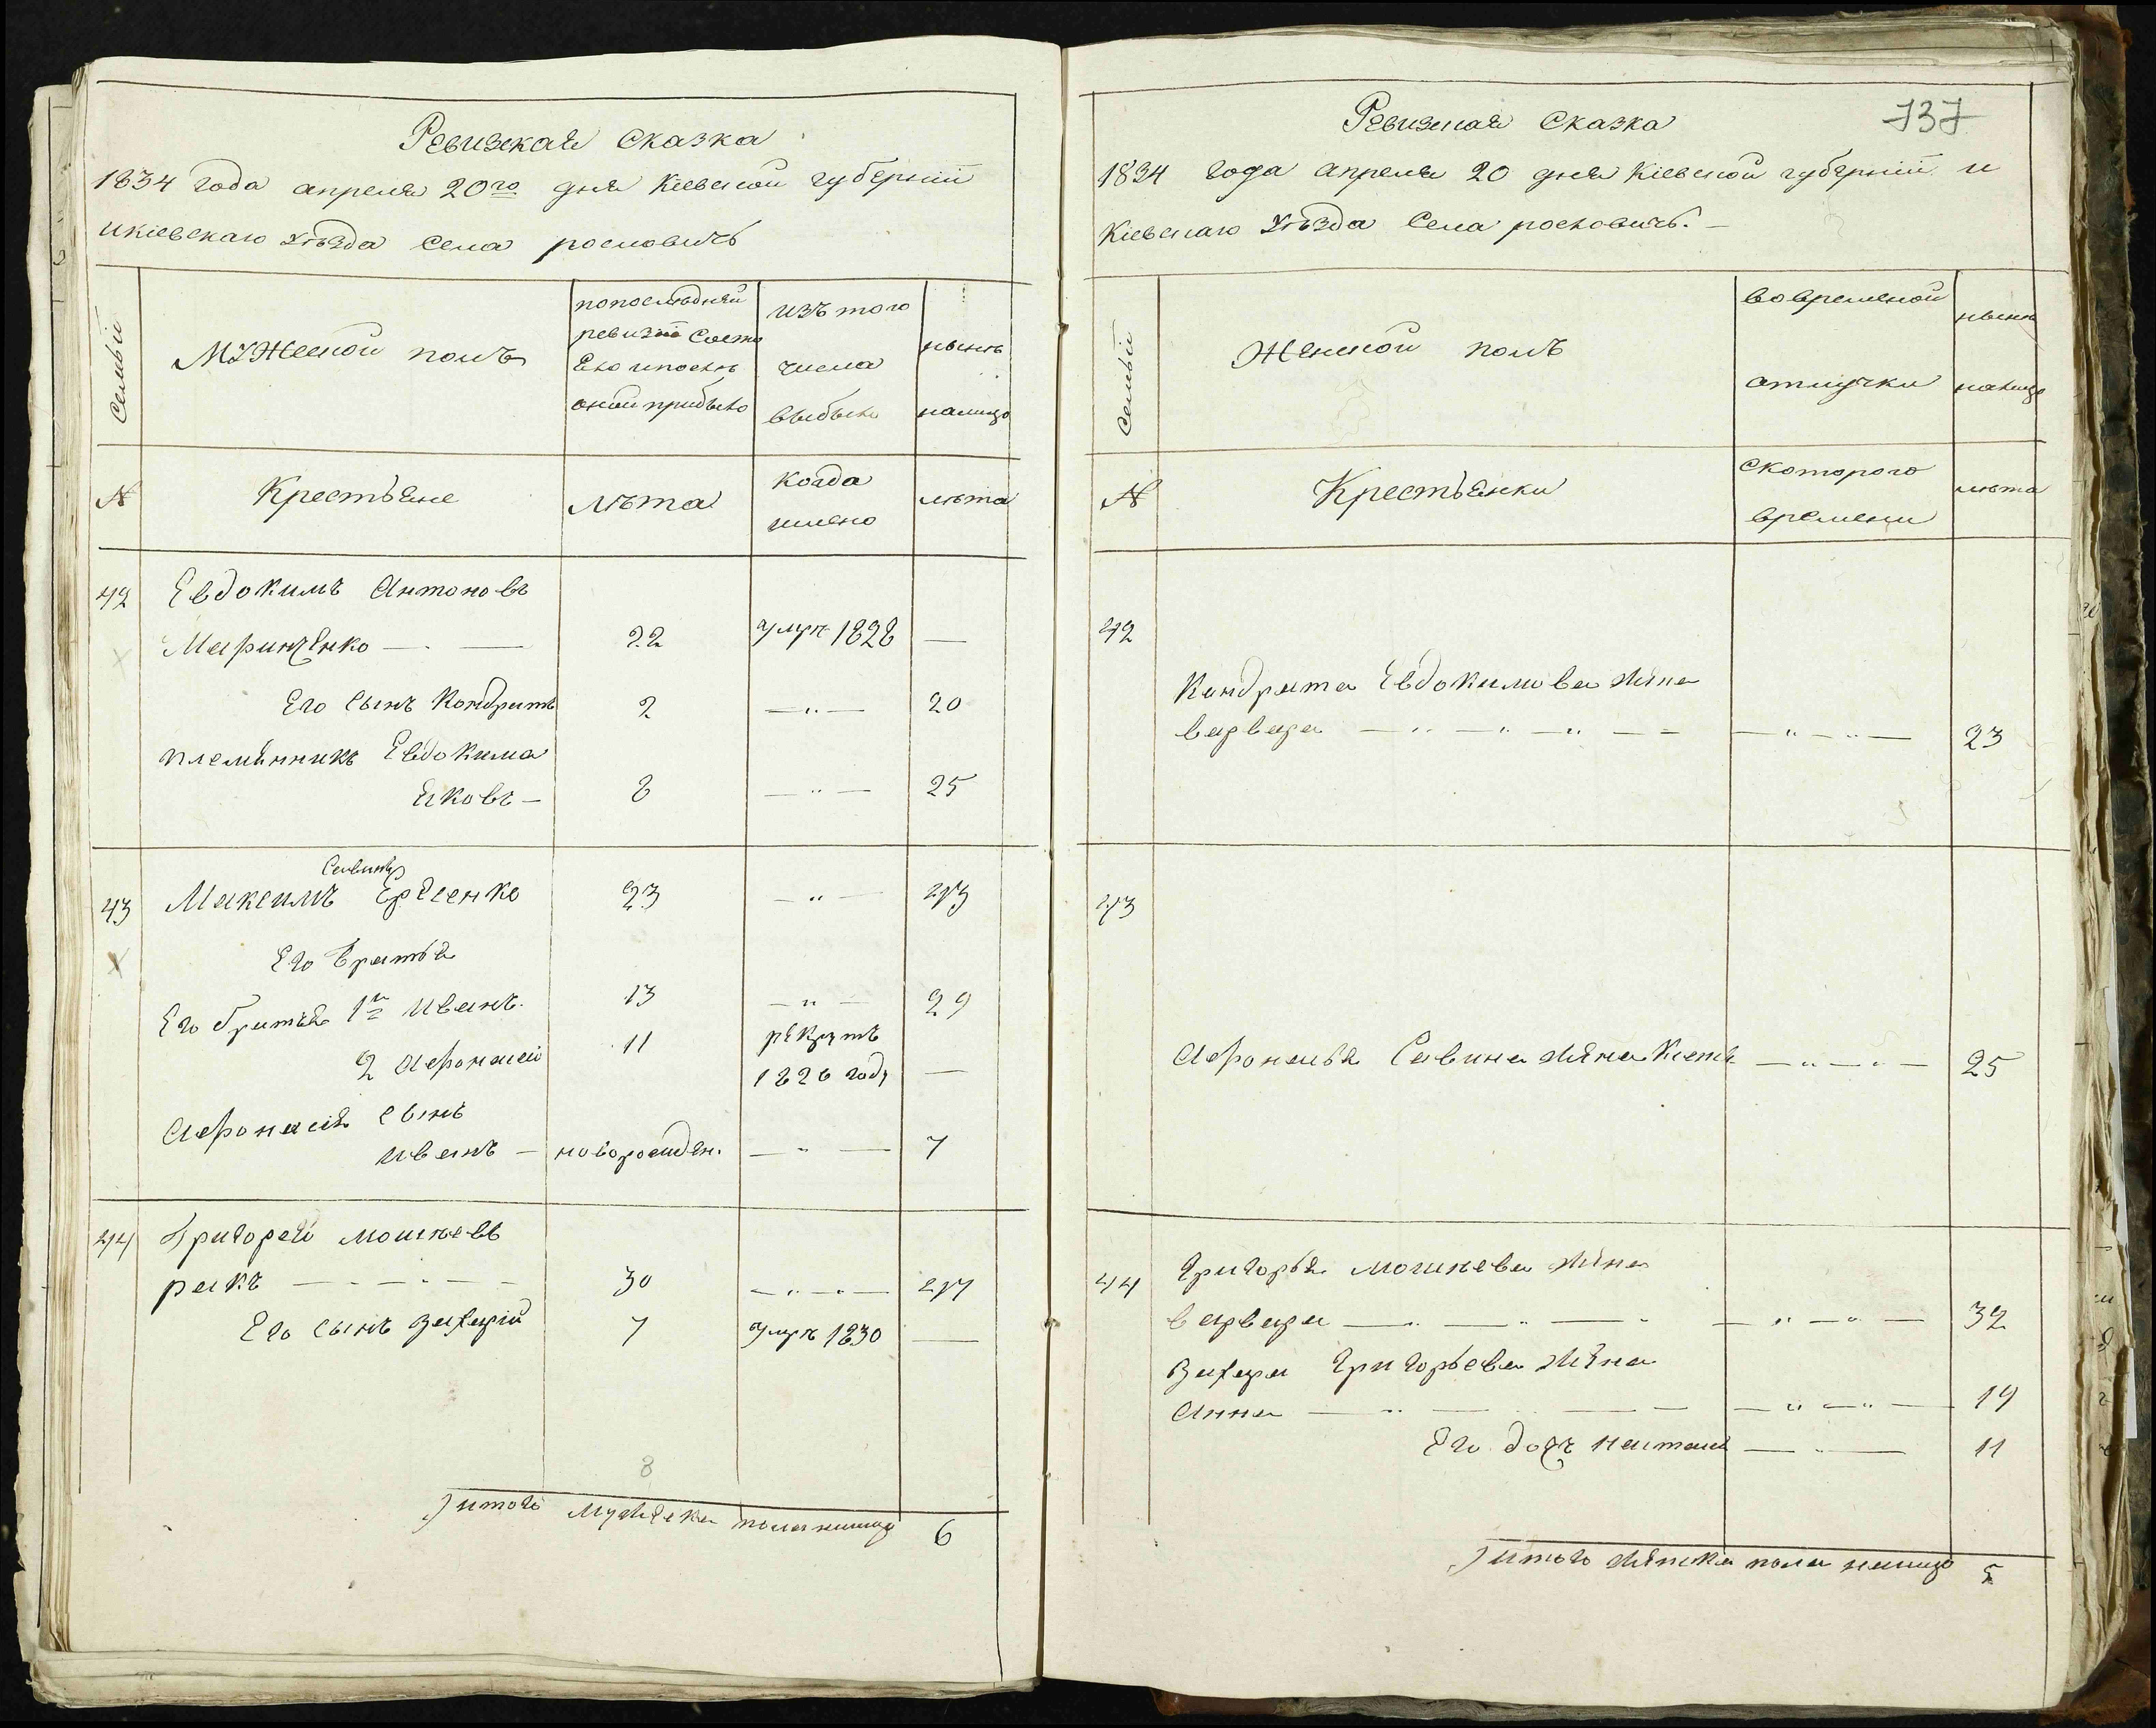 Ревизкая Сказка
1834 года апреля 20го дня Кіевской губерніи
икіевскаго уѣзда Села рословичъ
Семьи
Мужеской полъ
попослѣдней
ревизіи Состо
Яло ипослѣ
оной прибыло
изъ того
числа
выбыло
нынѣ
налицо
№
Крестьяне
лѣта
когда
имено
лѣта
42 Евдокимъ Антоновъ
Маринченко — — 22 умре 1828 —
Его Сынъ Кондратъ 2 — " — 20
племянникъ Евдокима
Яковъ — 8 — " — 25
Савинъ
43 Максимъ 23 — " — 43
Его Братья
Его братья 1й Иванъ 13 — " — 29
2 Афонасей 11 рекрутъ
1826 году —
Афонасія Сынъ
иванъ — новорожден. — " — 7
44 Григорей мосѣевъ
ракъ — — — 30 — " — " — 47
Его Сынъ Захарій 7 умре 1830 —
8
итого Мужеска пола налицо 6
737
Ревизская Сказка
1834 года апреля 20 дня Кіевской губерніи и
Кіевскаго уѣзда Села рословичъ. —
Семьи
Женской полъ
вовременой
отлучки
нынѣ
налицо
№
Крестьянки
скоторого
времени
лѣта
42
Кондрата Евдокимова жена
варвара — " — " — " — — — " — " — 23
43
Афонасья Савина жена — " — " — 25
44 Григорья мосѣева жена
варвара — " — " — " — " — " — 32
Захара Григорьева жена
Анна — " — — — — " — " — 19
Его дочь наталя — " — 11
итого женска пола налицо 5